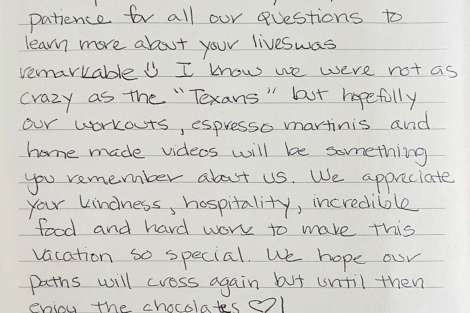 patience for all our questions to
learn more about your liveswas
remarkable☺ I know we were not as
crazy as the "Texans" but hopefully
our workouts, espresso martinis and
home made videos will be something
you remember about us. We appreciate
your kindness, hospitality, incredible
food and hard work to make this
vacation so special. We hope our
paths will cross again but until then
enjoy the chocolates ♡!